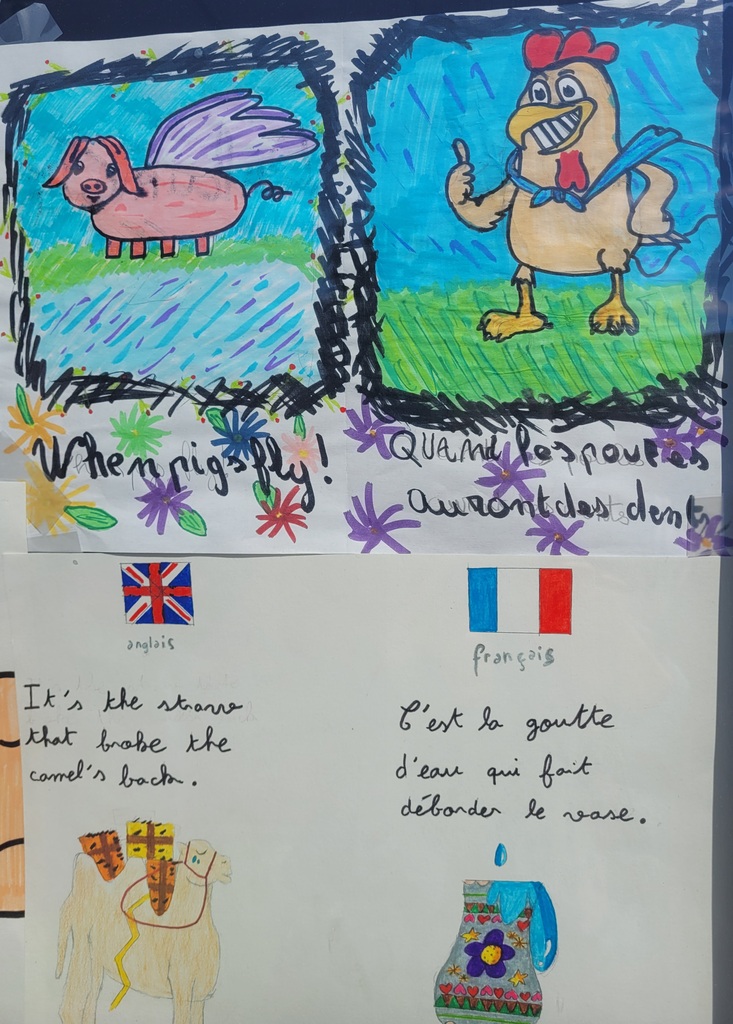 When pigs fly!
QUANd les poules
auront des dents
anglais
français
It's the strawe
that broke the
camel's back.
C'est la goutte
d'eau qui fait
déborder le vase.